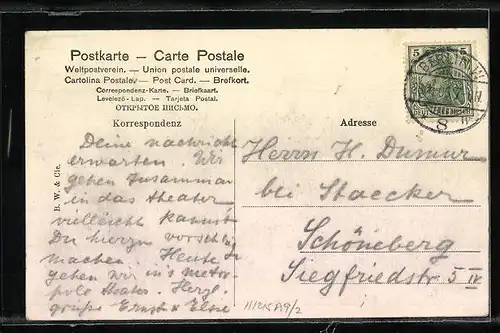 Postkarte — Carte Postale
Weltpostverein. — Union postale universelle.
Cartolina Postale. — Post Card. — Brefkort.
Correspondenz-Karte. — Briefkaart.
Levelező-Lap. — Tarjeta Postal.
ОТКРЫТОЕ ПИСЬМО.
Korrespondenz
Adresse
5 5
BERLIN
8
B. W. & Cie.
Deine nachricht
erwarten. Wir
gehen zusammen
in das theater
vielleicht kannst
Du hierzu vorschläg
machen. Heute
gehen wir in's metro-
pole theater. Herzl.
grüße Ernst & Else
Herrn H. Dumur
bei Staecker
Schöneberg
Siegfriedstr 5 IV